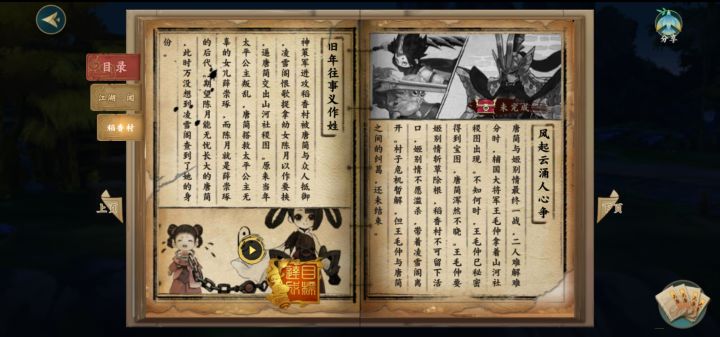 分享
目录
江湖 闻
稻香村
上页
下页
旧年往事义作姓
神策军进攻稻香村被唐简与众人抵御
，凌雪阁恨歌捉拿幼女陈月以作要挟
，逼唐简交出山河社稷图。原来当年
太平公主叛乱，唐简搭救太平公主无
辜的女儿薛崇琢，而陈月就是薛崇琢
的后代。期望陈月能无忧长大的唐简
，此时万没想到凌雪阁查到了她的身
份。
目标
达成
未完成
风起云涌人心争
唐简与姬别情最终一战，二人难解难
分时，辅国大将军王毛仲拿着山河社
稷图出现。不知何时，王毛仲已秘密
得到宝图，唐简浑然不晓。王毛仲要
姬别情斩草除根，稻香村不可留下活
口，姬别情不愿滥杀，带着凌雪阁离
开。村子危机暂解，但王毛仲与唐简
之间的纠葛，还未结束。